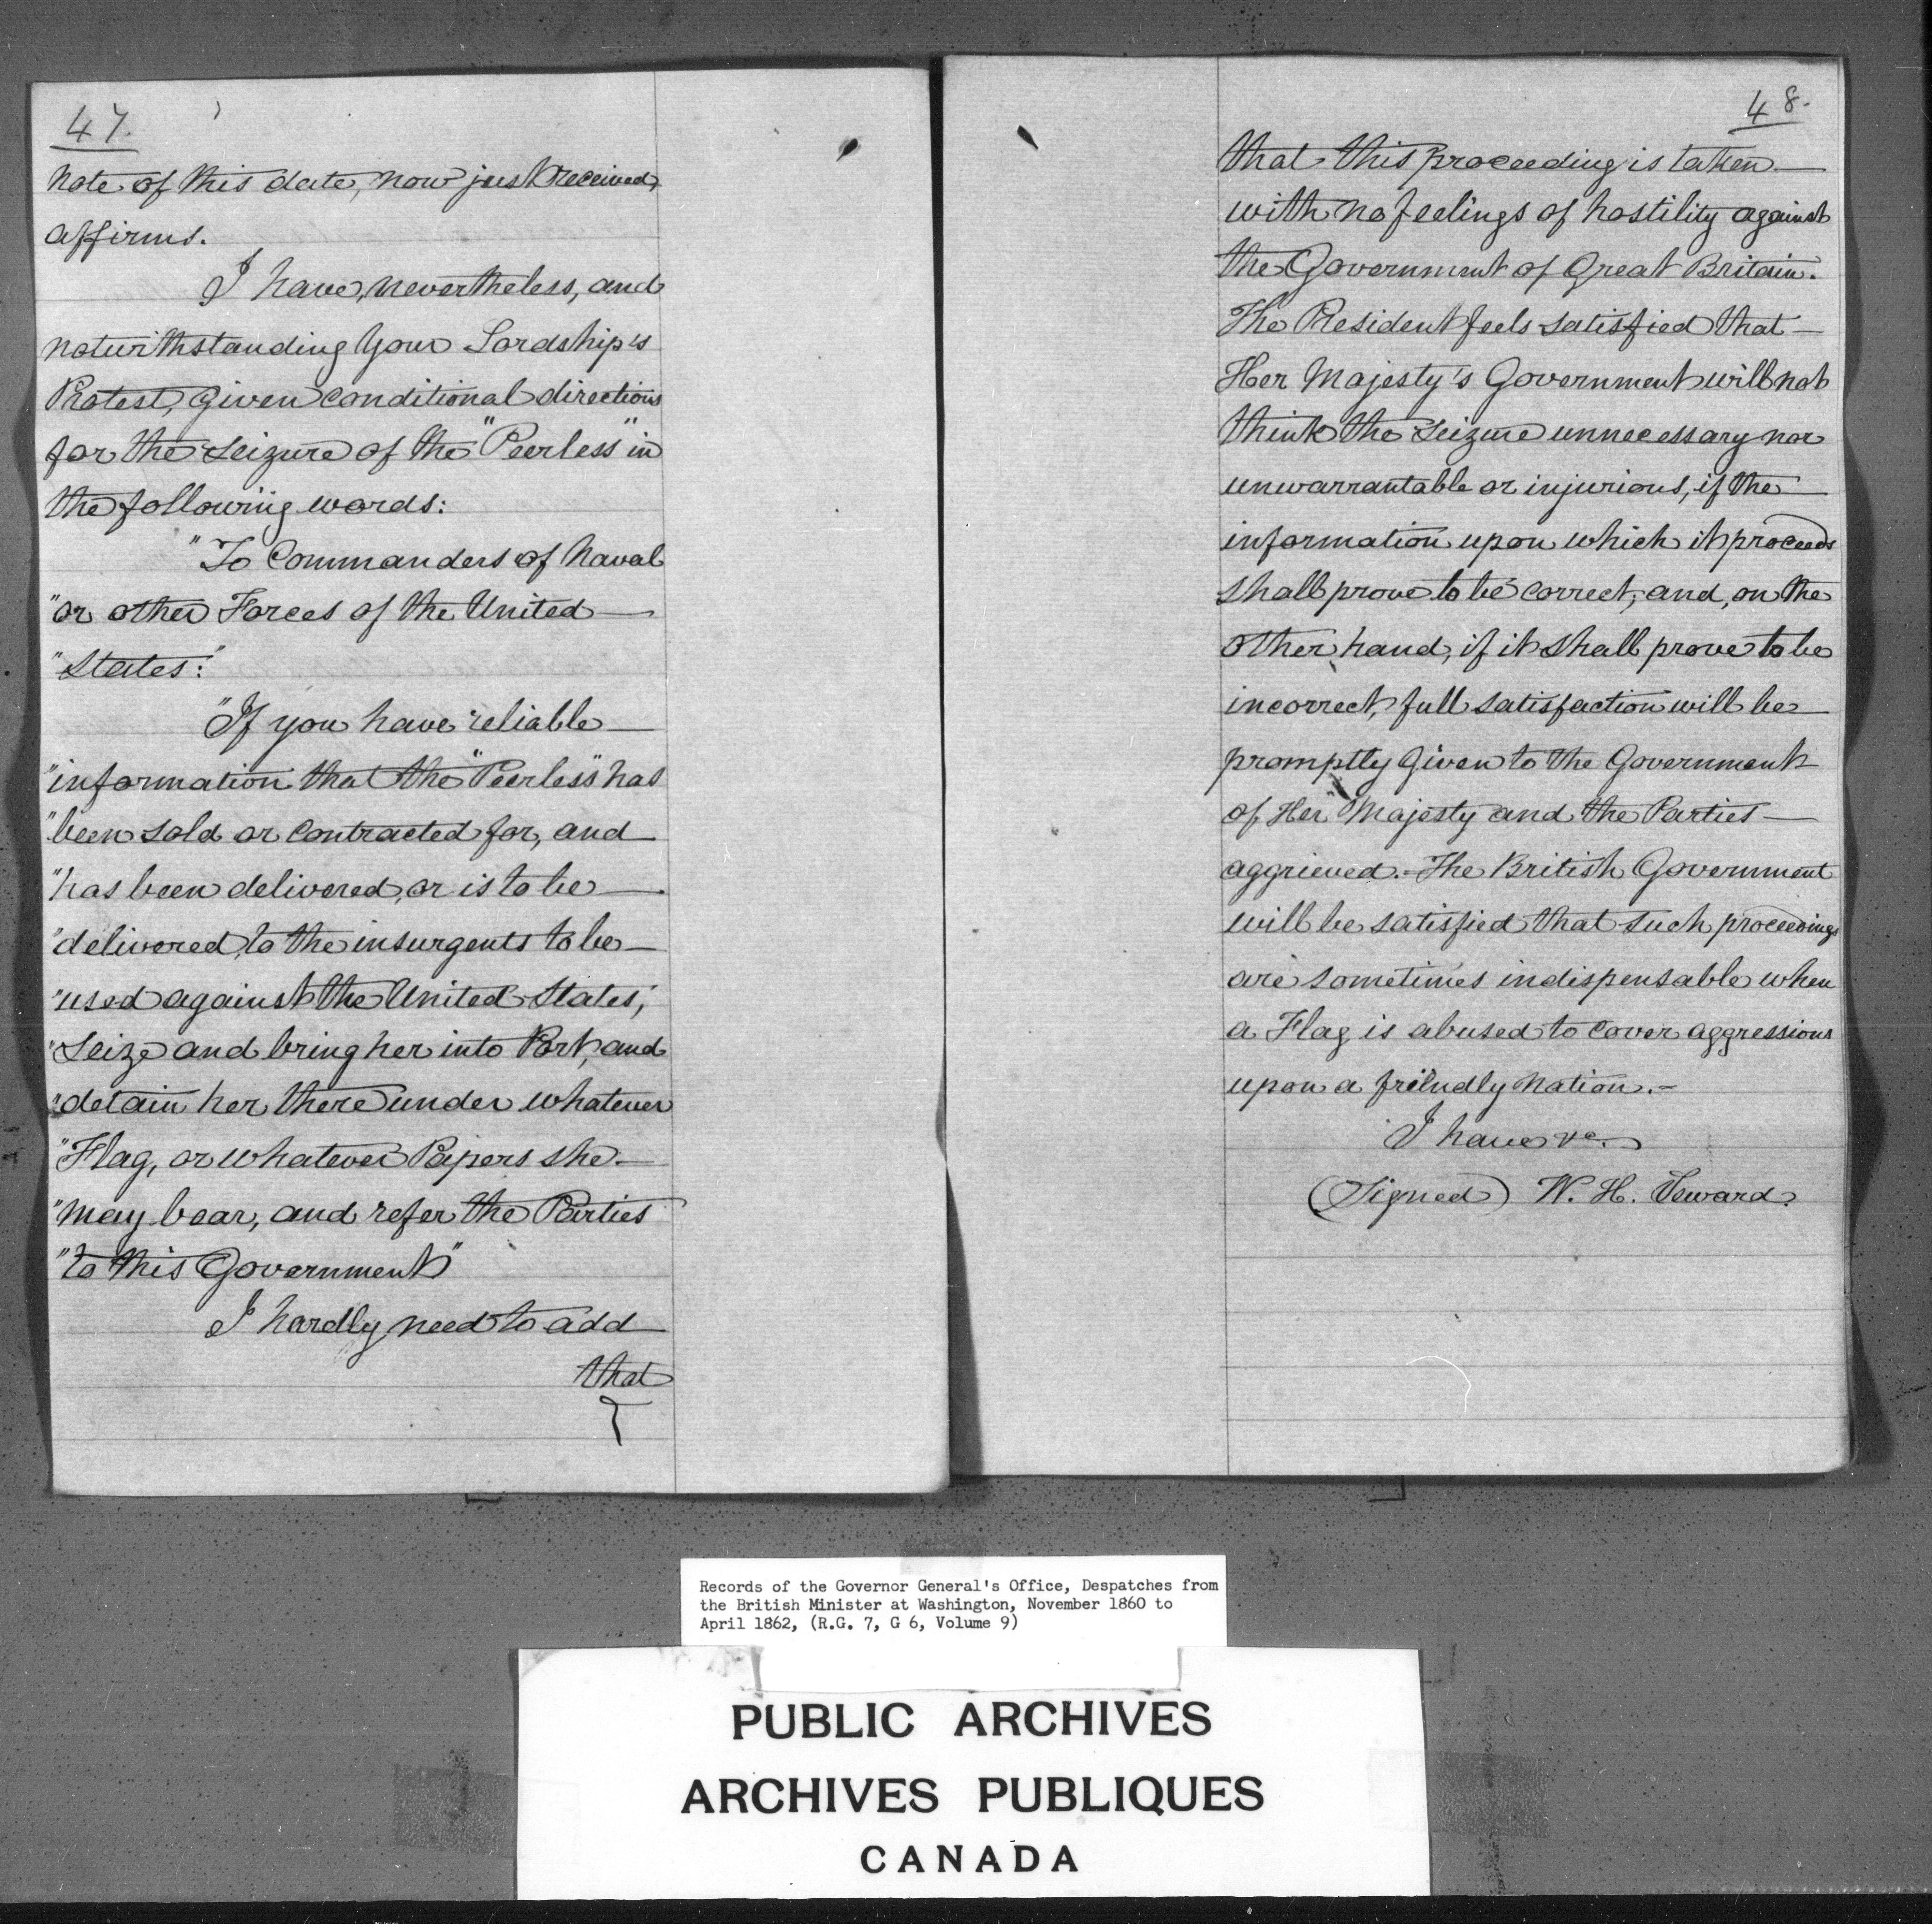 47.
note of this date, now just received,
affirms.
I have, nevertheless, and
notwithstanding Your Lordship's
Protest, given conditional directions
for the seizure of the "Peerless" in
the following words:
"To Commanders of Naval
"or other Forces of the United
"States:"
"If you have reliable
"information that the "Peerless" has
"been sold or contracted for, and
"has been delivered, or is to be
"delivered, to the insurgents to be
"used against the United States,
"Seize and bring her into Port, and
"detain her there under whatever
"Flag, or whatever Papers she
"may bear, and refer the Parties
"to this Government"
I hardly need to add
that
48.
that this proceeding is taken
with no feelings of hostility against
the Government of Great Britain.
The President feels satisfied that
Her Majesty's Government will not
think the seizure unnecessary nor
unwarrantable or injurious, if the
information upon which it proceeds
shall prove to be correct; and, on the
other hand, if it shall prove to be
incorrect, full satisfaction will be
promptly given to the Government
of Her Majesty and the Parties
aggrieved.- The British Government
will be satisfied that such proceedings
are sometimes indispensable when
a Flag is abused to cover aggressions
upon a friendly Nation.-
I have &c.
(Signed) W. H. Seward.
Records of the Governor General's Office, Despatches from
the British Minister at Washington, November 1860 to
April 1862, (R.G. 7, G 6, Volume 9)
PUBLIC ARCHIVES
ARCHIVES PUBLIQUES
CANADA